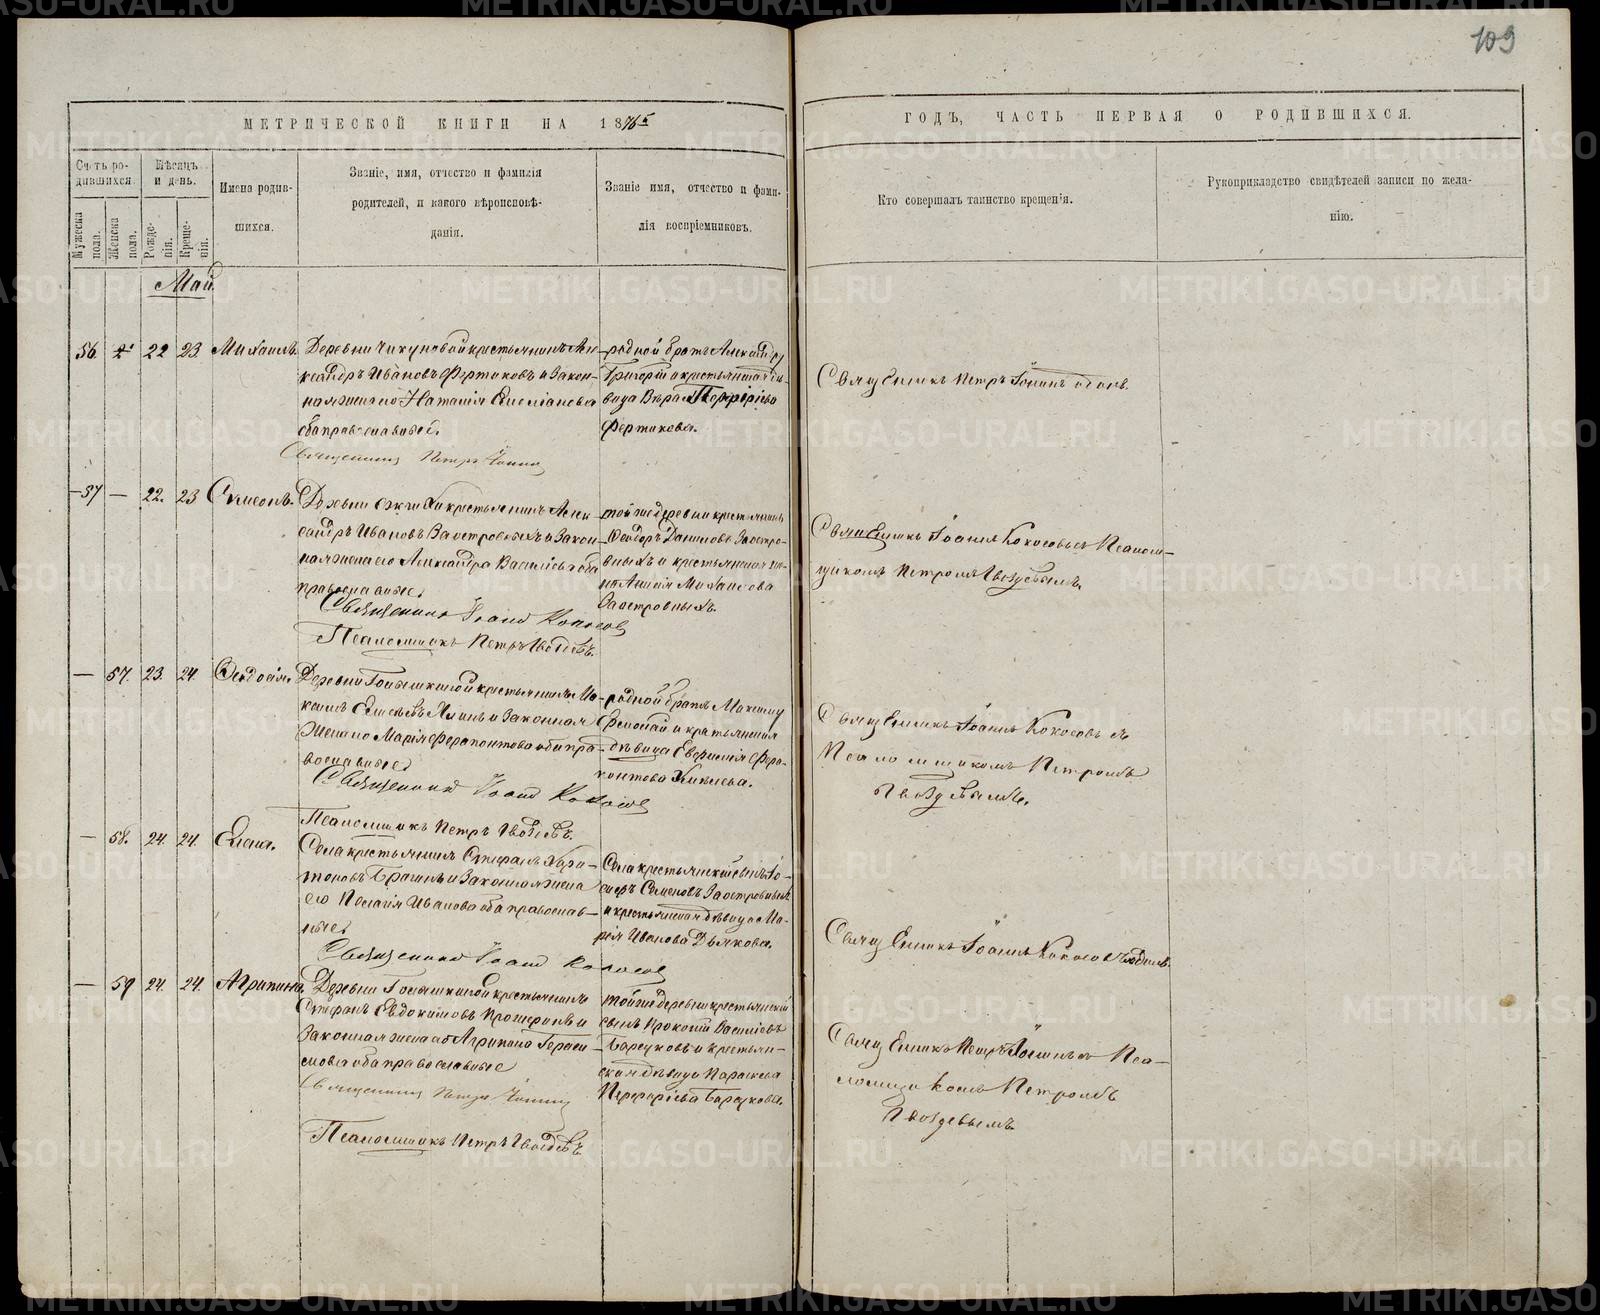 109
МЕТРИЧЕСКОЙ КНИГИ НА 18
ГОДЪ, ЧАСТЬ ПЕРВАЯ О РОДИВШИХСЯ.
Счетъ ро-
дившихся.
Мѣсяцъ
и день.
Имена родив-
шихся.
Званіе, имя, отчество и фамилія
родителей, и какого вѣроисповѣ-
данія.
Званіе имя, отчество и фами-
лія воспріемниковъ.
Кто совершалъ таинство крещенія.
Рукоприкладство свидѣтелей записи по жела-
нію.
Мужеска
пола.
Женска
пола.
Рожде-
нія.
Креще-
нія.
Май.
56 22 23 Михаилъ.
Деревни Чикуновой крестьянинъ Але-
ксандръ Ивановъ Фертиковъ и закон-
ная жена его Наталія
оба православные.
Священникъ Петръ
родной братъ Александру
Григорій и крестьянская дѣ-
вица Вѣра Перфирiева
Фертикова.
Священникъ Петръ одинъ.
57 — 22. 23 Симеонъ.
Деревни крестьянинъ Алек-
сандръ Ивановъ Заостровныхъ и закон-
ная жена его Александра Василіева оба
православные.
Священникъ Іоаннъ Кокосов
Псаломщикъ Петръ Гвоздевъ.
той же деревни крестьянинъ
Ѳеодоръ Даниловъ Заостро-
вныхъ и крестьянская же-
на Михаилова
Заостровныхъ.
Священникъ Іоаннъ Кокосовъ съ Псалом-
щикомъ Петромъ Гвоздевымъ.
— 57. 23. 24. Ѳеодосія.
Деревни крестьянинъ Ма-
ксимъ и законная
жена его Марія Ферапонтова оба пра-
вославные
Священникъ Іоаннъ Кокосов
Псаломщикъ Петръ Гвоздевъ.
родной братъ Максиму
и крестьянская
дѣвица Евфимія Фера-
понтова
Священникъ Іоаннъ Кокосовъ съ
Псаломщикомъ Петромъ
Гвоздевымъ.
— 58. 24. 24. Елена.
Села крестьянинъ Стефанъ Хари-
тоновъ и законная жена
его Пелагія Иванова оба православ-
ные
Священникъ Іоаннъ Кокосов
Села крестьянскій сынъ Іо-
сифъ Семеновъ Заостровныхъ
и крестьянская дѣвица Ма-
рія Иванова Дьякова.
Священникъ Іоаннъ Кокосовъ одинъ.
— 59 24. 24. Агрипина.
Деревни крестьянинъ
Стефанъ Евдокимовъ и
законная жена его Агрипина Гераси-
мова оба православные
Священникъ Петръ
Псаломщикъ Петръ Гвоздевъ
той же деревни крестьянскій
сынъ Прокопій Василіевъ
Барсуковъ и крестьян-
ская дѣвица Параскева
Перфирiева Барсукова.
Священникъ Петръ съ Пса-
ломщикомъ Петромъ
Гвоздевымъ
METRIKI.GASO-URAL.RU